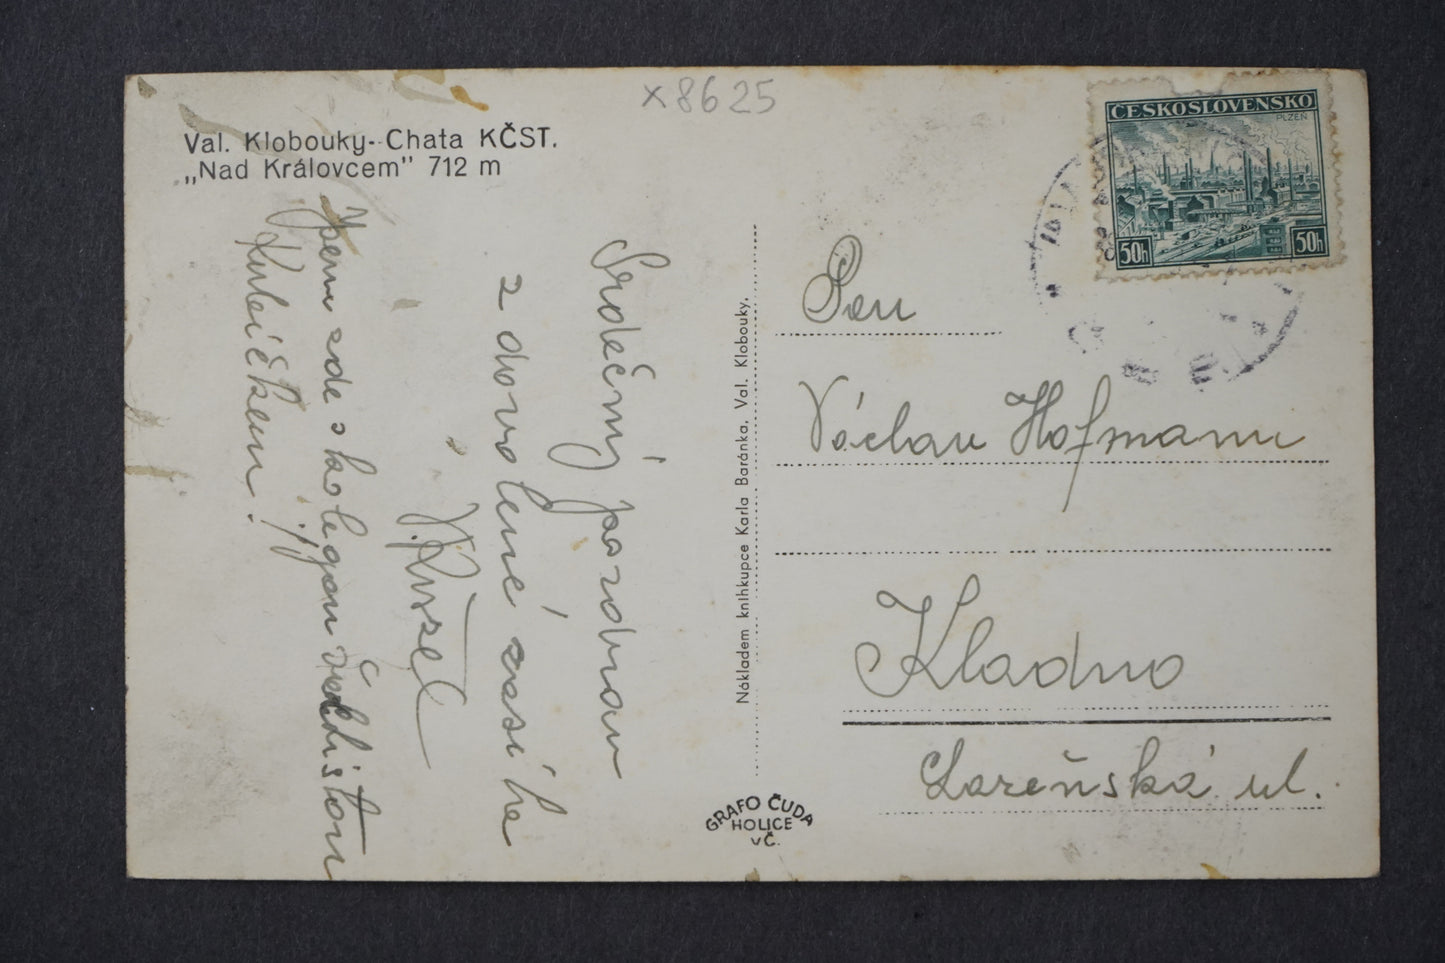 x8625
Val. Klobouky--Chata KČST.
„Nad Královcem” 712 m
Srdečný pozdrav
z dovolené zasílá
Jsem zde s kolegou
Nákladem knihkupce Karla Baránka, Val. Klobouky.
GRAFO ČUDA
HOLICE
vČ.
ČESKOSLOVENSKO
PLZEŇ
50h 50h
Pan
Václav Hofmann
Kladno
Lázeňská ul.